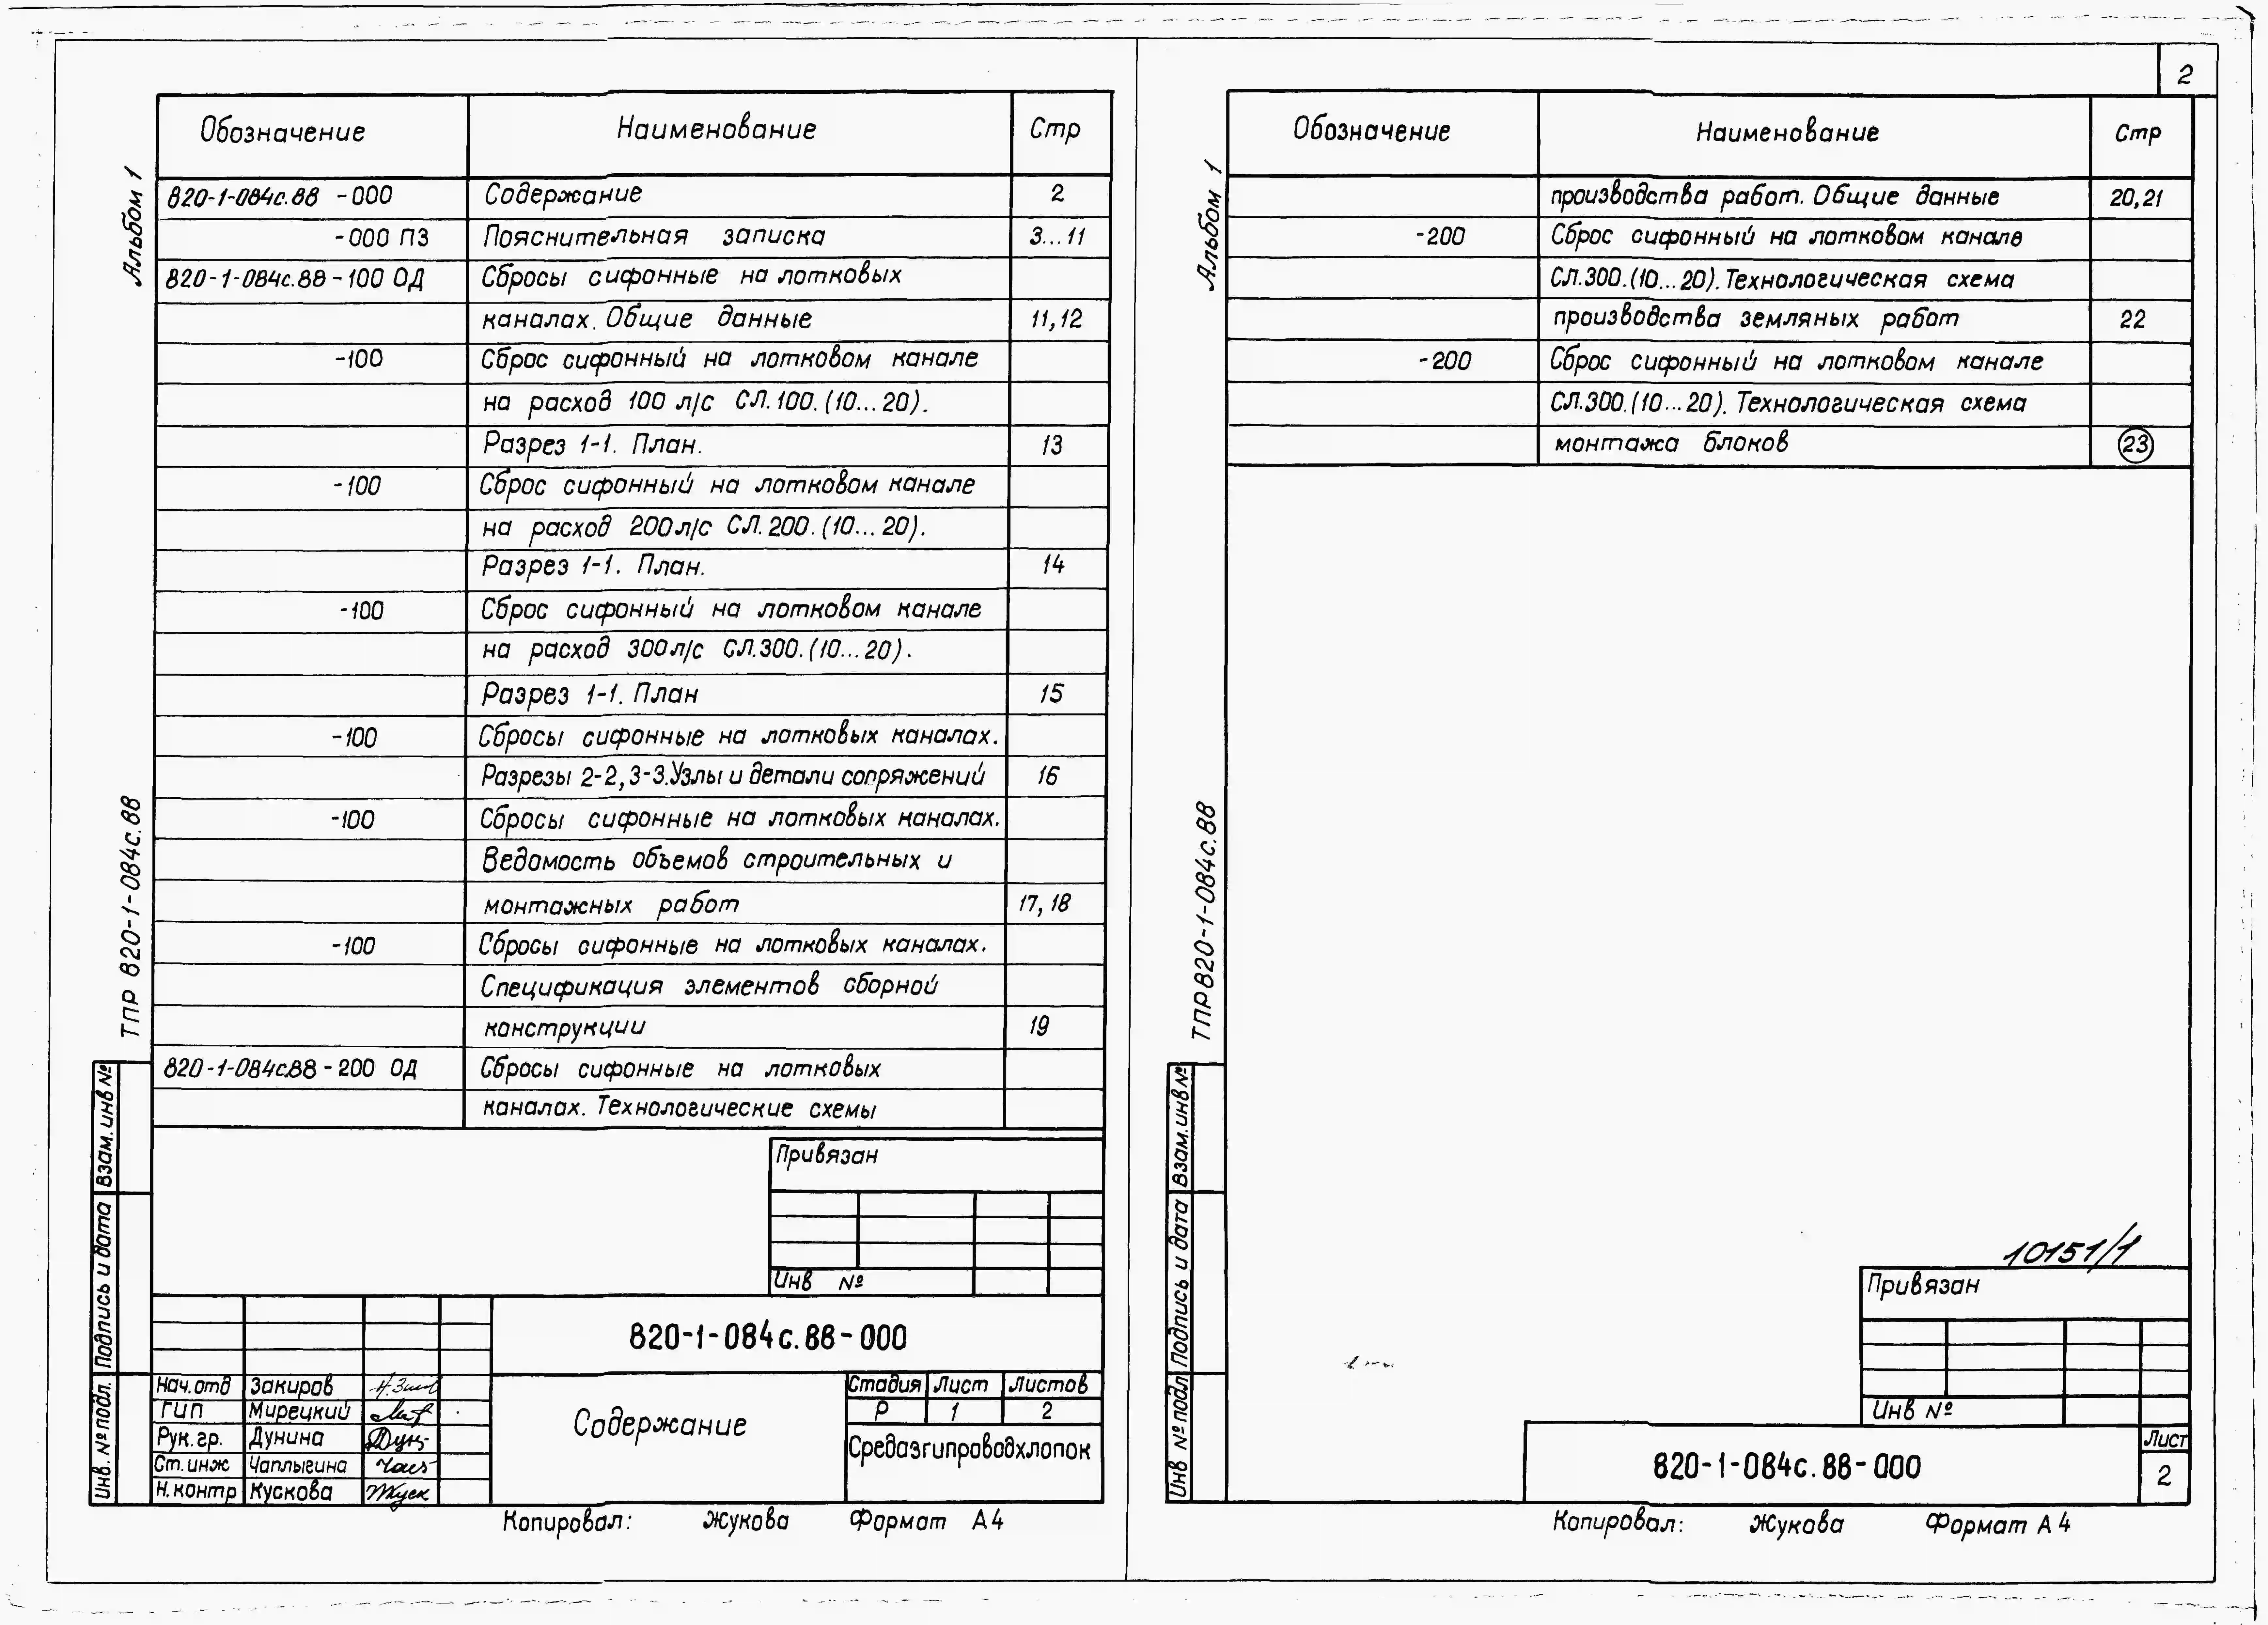 2
Альбом 1
ТПР 820-1-084с.88
Обозначение Наименование Стр
820-1-084с.88 -000 Содержание 2
-000 ПЗ Пояснительная записка 3...11
820-1-084с.88-100 ОД Сбросы сифонные на лотковых
каналах. Общие данные 11,12
-100 Сброс сифонный на лотковом канале
на расход 100 л/с СЛ.100.(10...20).
Разрез 1-1. План. 13
-100 Сброс сифонный на лотковом канале
на расход 200л/с СЛ.200.(10...20).
Разрез 1-1. План. 14
-100 Сброс сифонный на лотковом канале
на расход 300л/с СЛ.300.(10...20).
Разрез 1-1. План 15
-100 Сбросы сифонные на лотковых каналах.
Разрезы 2-2,3-3.Узлы и детали сопряжений 16
-100 Сбросы сифонные на лотковых каналах.
Ведомость объемов строительных и
монтажных работ 17,18
-100 Сбросы сифонные на лотковых каналах.
Спецификация элементов сборной
конструкции 19
820-1-084с.88-200 ОД Сбросы сифонные на лотковых
каналах. Технологические схемы
Взам.инв №
Подпись и дата
Инв.№подл.
Привязан
Инв №
820-1-084с.88-000
Нач.отд Закиров
ГИП Мирецкий
Рук.гр. Дунина
Ст.инж Чаплыгина
Н.контр Кускова
Содержание
Стадия Лист Листов
Р 1 2
Средазгипроводхлопок
Копировал: Жукова Формат А4
Альбом 1
ТПР820-1-084с.88
Обозначение Наименование Стр
производства работ. Общие данные 20,21
-200 Сброс сифонный на лотковом канале
СЛ.300.(10...20).Технологическая схема
производства земляных работ 22
-200 Сброс сифонный на лотковом канале
СЛ.300.(10...20). Технологическая схема
монтажа блоков 23
Взам.инв№
Подпись и дата
Инв №подл
10151/1
Привязан
Инв №
820-1-084с.88-000
Лист
2
Копировал: Жукова Формат А4